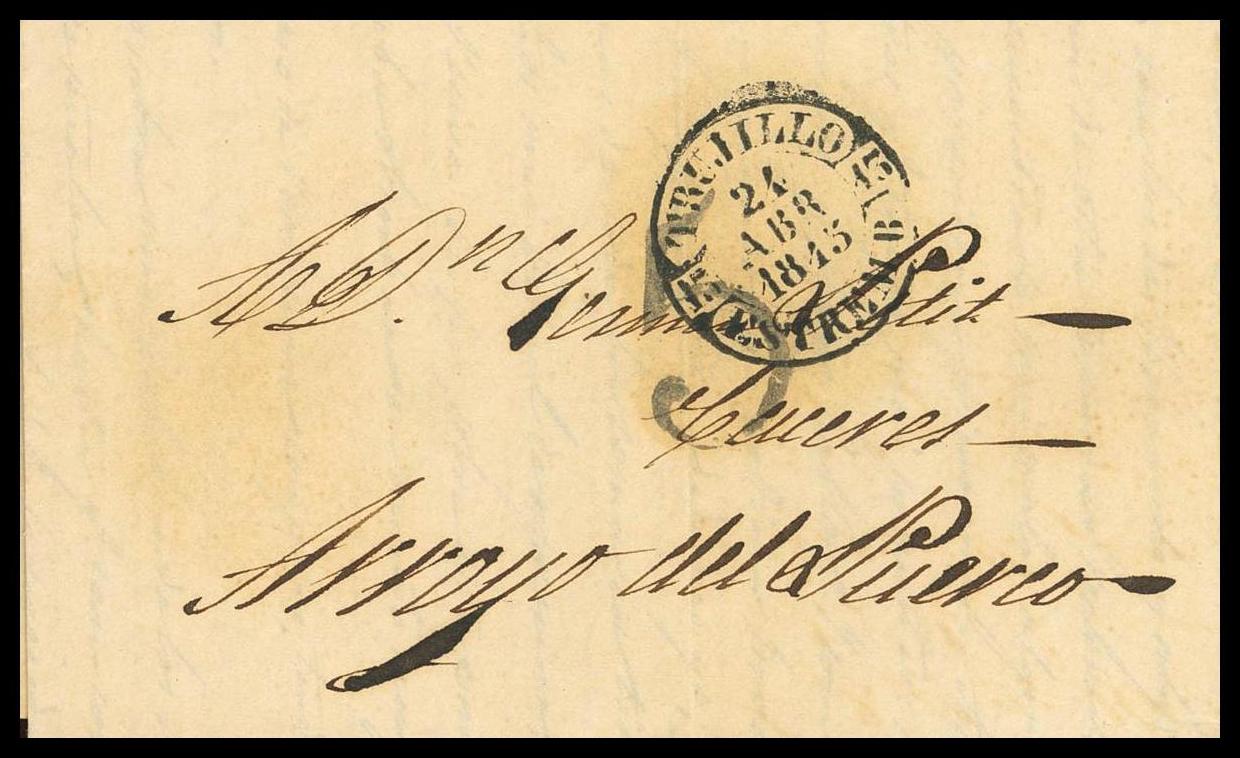 TRUJILLO
24
ABR
1845
ESTREM B.
A D.n Germán Petit
Caceres
Arroyo del Puerco